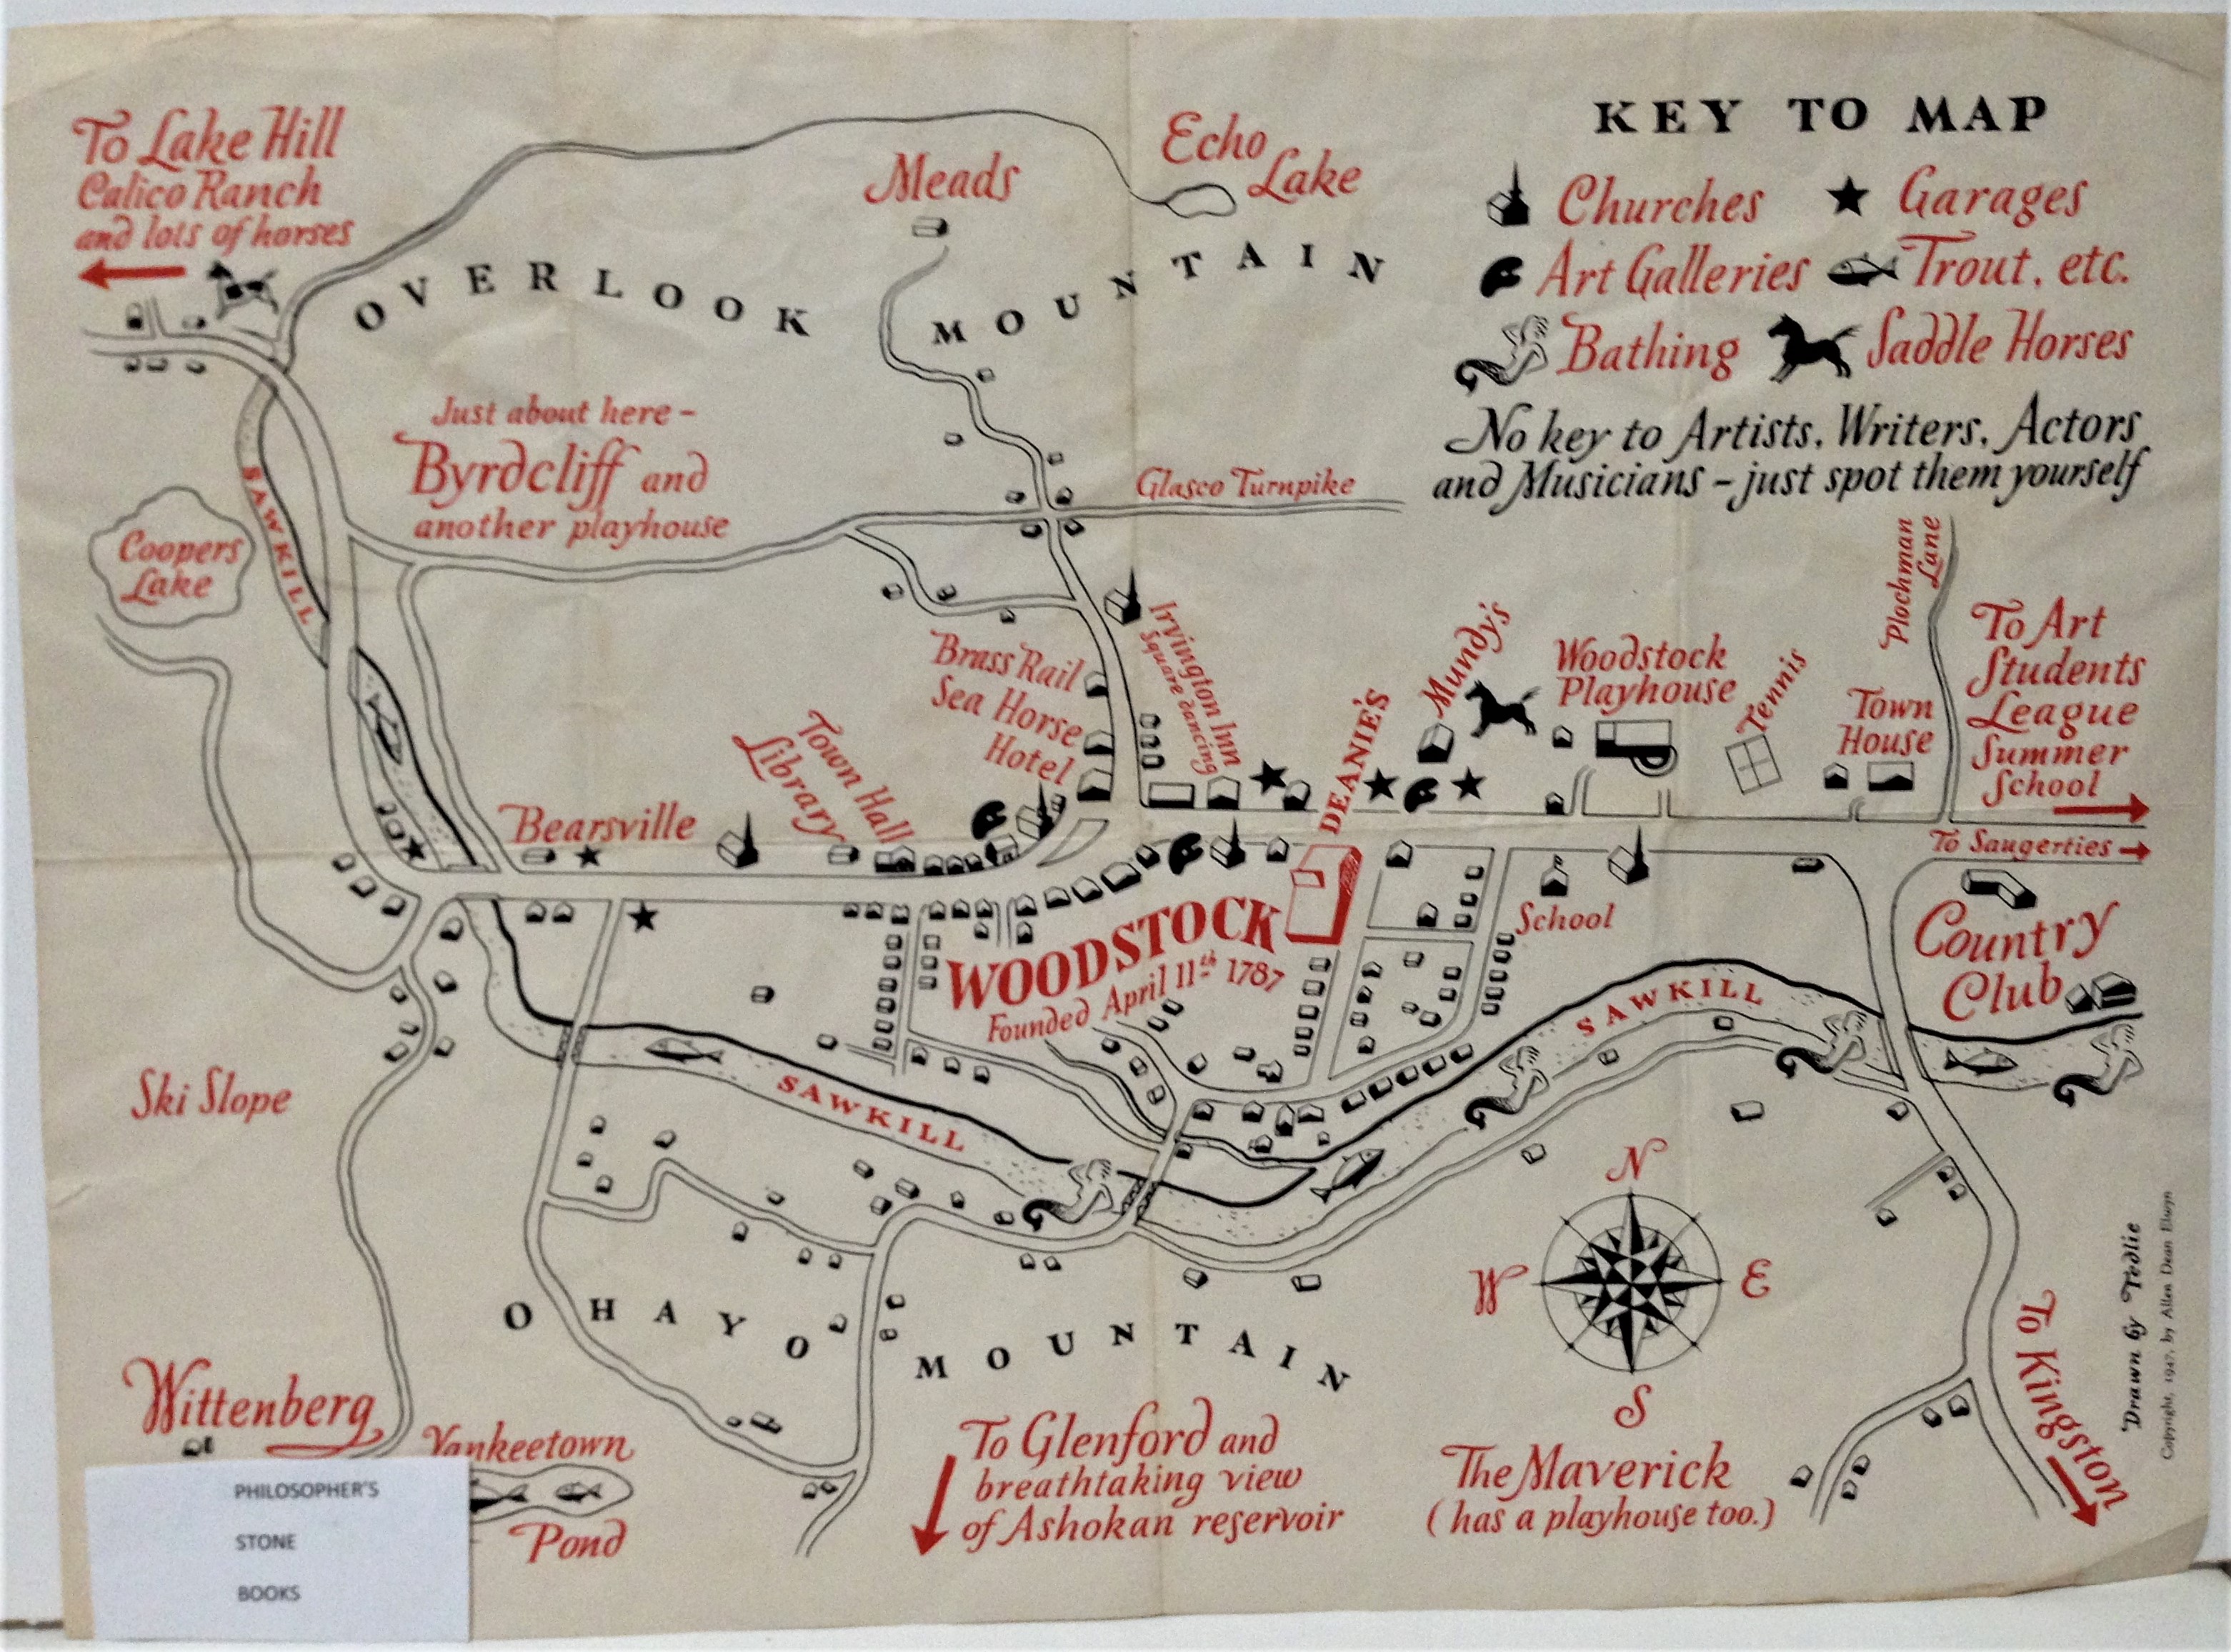 KEY TO MAP
Churches
Garages
Art Galleries
Trout, etc.
Bathing
Saddle Horses
No key to Artists, Writers, Actors
and Musicians – just spot them yourself
To Lake Hill
Calico Ranch
and lots of horses
Meads
Echo
Lake
OVERLOOK MOUNTAIN
Just about here –
Byrdcliff and
another playhouse
Glasco Turnpike
SAWKILL
Coopers
Lake
Plochman
Lane
Brass Rail
Sea Horse
Hotel
Irvington Inn
Square dancing
Mundy's
Woodstock
Playhouse
Tennis
Town
House
To Art
Students
League
Summer
School
To Saugerties
Bearsville
Library
Town Hall
DEANIE'S
WOODSTOCK
Founded April 11th 1787
School
Country
Club
SAWKILL
SAWKILL
Ski Slope
N
W
E
S
OHAYO MOUNTAIN
Wittenberg
Yankeetown
Pond
To Glenford and
breathtaking view
of Ashokan reservoir
The Maverick
(has a playhouse too.)
To Kingston
Drawn by Tedlie
Copyright, 1947, by Allen Dean Elwyn
PHILOSOPHER'S
STONE
BOOKS